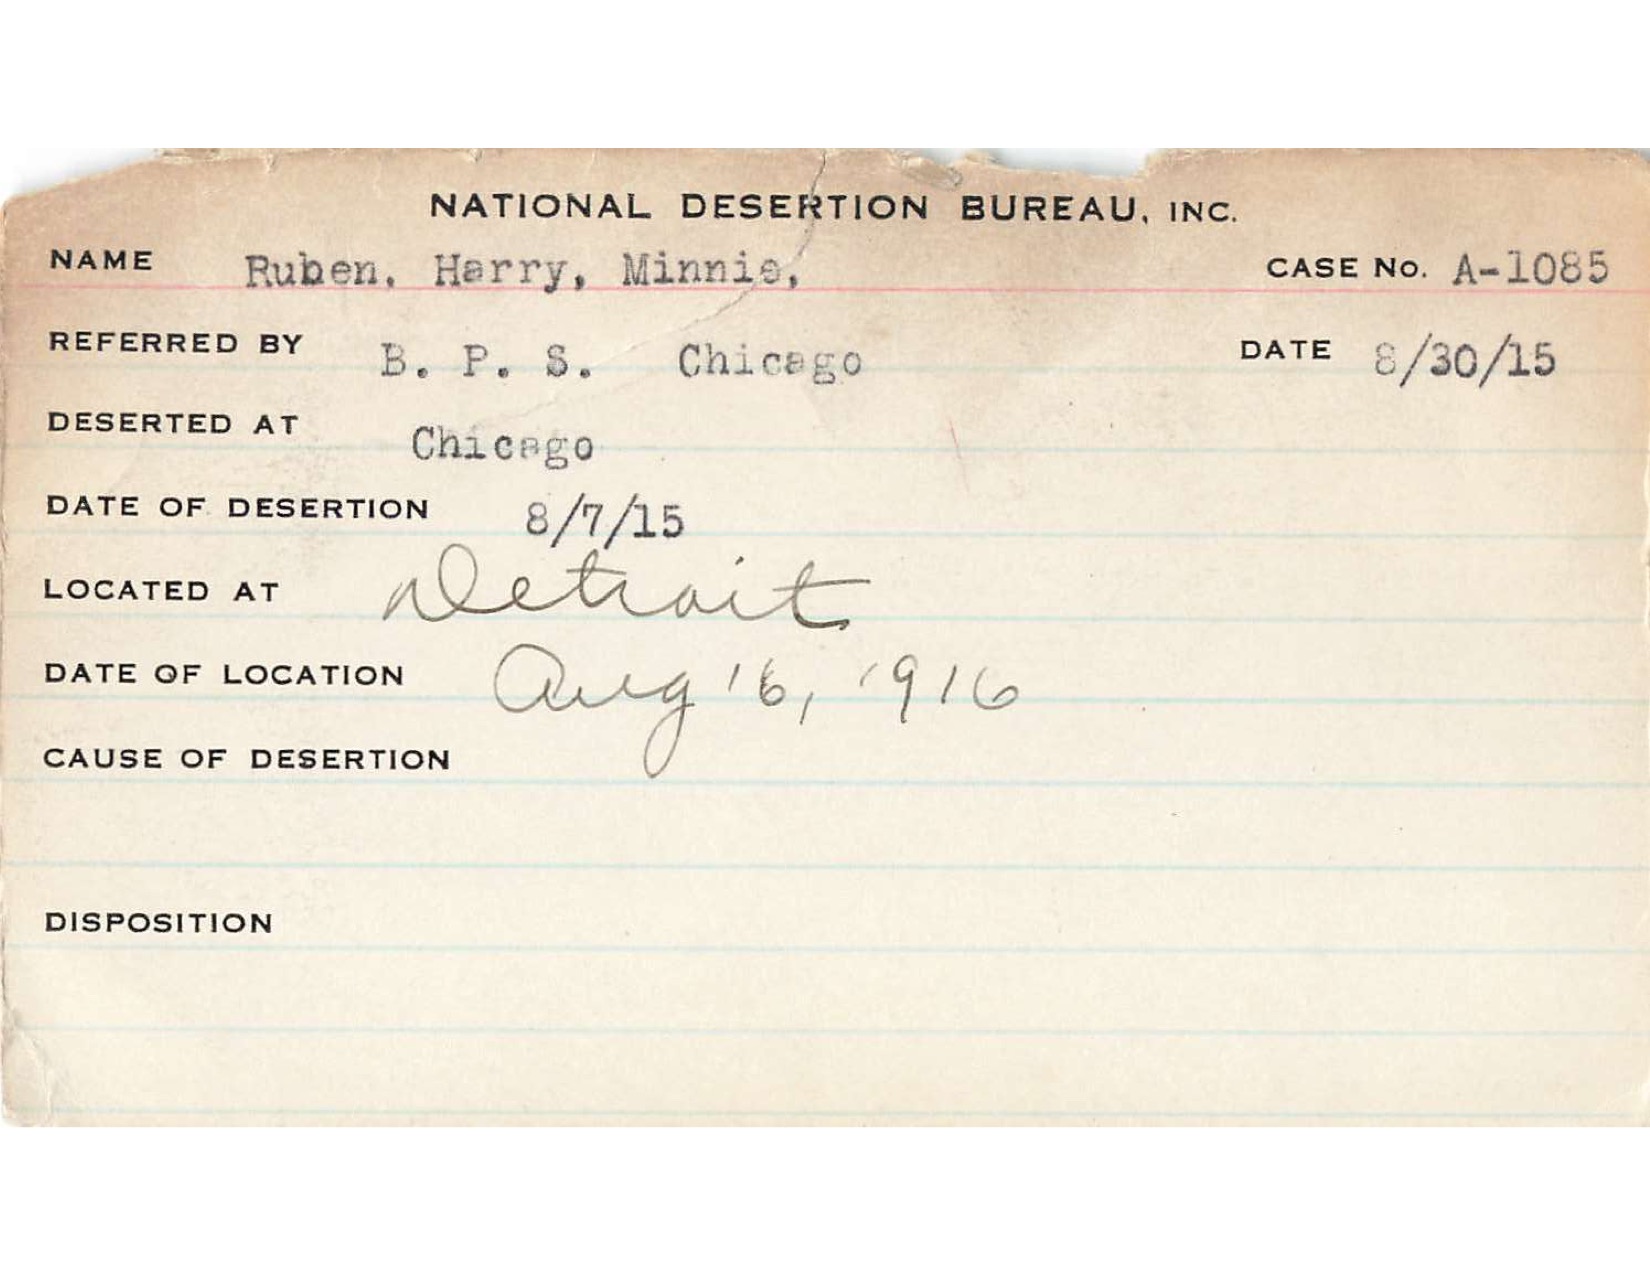 NATIONAL DESERTION BUREAU, INC.
NAME Ruben. Harry, Minnie, CASE No. A-1085
REFERRED BY B. P. S. Chicago DATE 8/30/15
DESERTED AT Chicago
DATE OF DESERTION 8/7/15
LOCATED AT Detroit
DATE OF LOCATION Aug 16, 1916
CAUSE OF DESERTION
DISPOSITION